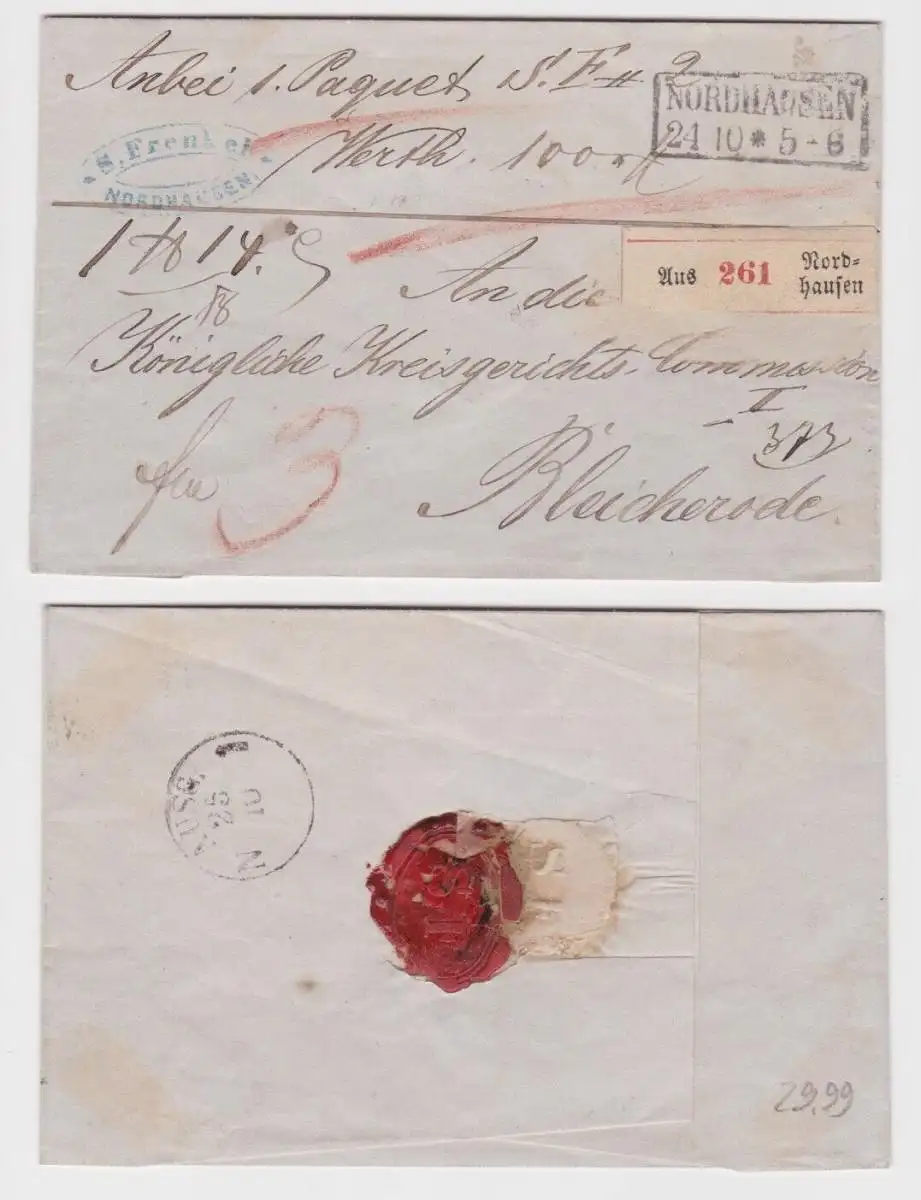 Anbei 1. Paquet S. F. # 2
NORDHAUSEN
24 10 * 5-6
Werth. 100
S. Frenkel
NORDHAUSEN.
1 14.
18
Aus 261 Nord-
hausen
An die
Königliche Kreisgerichts-Commission
II
373
fr 3
Bleicherode.
1
10
25
N AUSG
29,99